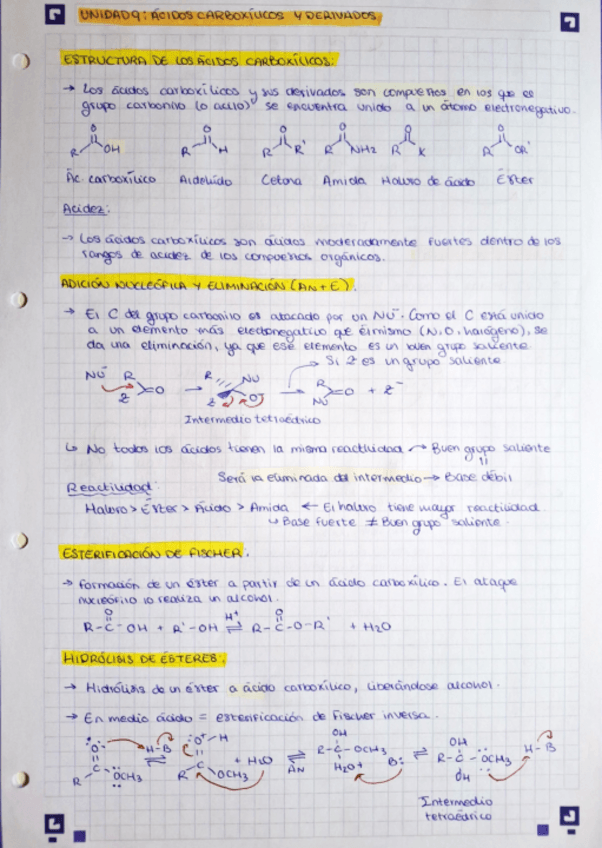 UNIDAD 9: ÁCIDOS CARBOXÍLICOS Y DERIVADOS
ESTRUCTURA DE LOS ÁCIDOS CARBOXÍLICOS:
→ Los ácidos carboxílicos y sus derivados son compuestos en los que el
grupo carbonilo (o acilo) se encuentra unido a un átomo electronegativo.
O O O O O O
R OH R H R R' R NH2 R X R OR'
Ác carboxílico Aldehído Cetona Amida Haluro de ácido Éster
Acidez:
→ Los ácidos carboxílicos son ácidos moderadamente fuertes dentro de los
rangos de acidez de los compuestos orgánicos.
ADICIÓN NUCLEÓFILA Y ELIMINACIÓN (AN+E):
→ El C del grupo carbonilo es atacado por un Nu⁻. Como el C está unido
a un elemento más electronegativo que él mismo (N, O, halógeno), se
da una eliminación, ya que ese elemento es un buen grupo saliente.
→ Si Z es un grupo saliente
Nu⁻ R Z =O → R Nu Z O⁻ → R Nu =O + Z⁻
Intermedio tetraédrico
↳ No todos los ácidos tienen la misma reactividad → Buen grupo saliente
=
Será la eliminada del intermedio → Base débil
Reactividad:
Haluro > Éster > Ácido > Amida ← El haluro tiene mayor reactividad
↳ Base fuerte ≠ Buen grupo saliente.
ESTERIFICACIÓN DE FISCHER.
→ Formación de un éster a partir de un ácido carboxílico. El ataque
nucleófilo lo realiza un alcohol.
O H⁺ O
R-C-OH + R'-OH ⇌ R-C-O-R' + H2O
HIDRÓLISIS DE ÉSTERES:
→ Hidrólisis de un éster a ácido carboxílico, liberándose alcohol.
→ En medio ácido = esterificación de Fischer inversa.
O H-B O⁺-H OH OH H-B
C ⇌ C + H2O ⇌ R-C-OCH3 B: ⇌ R-C-OCH3
R OCH3 R OCH3 AN H2O+ OH
Intermedio
tetraédrico